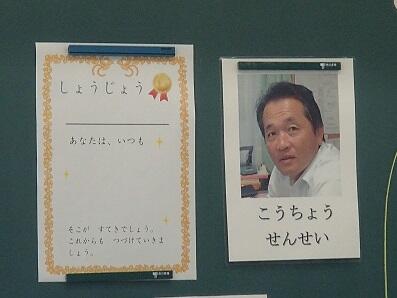 しょうじょう
あなたは、いつも
そこが　すてきでしょう。
これからも　つづけていきま
しょう。
こうちょう
せんせい